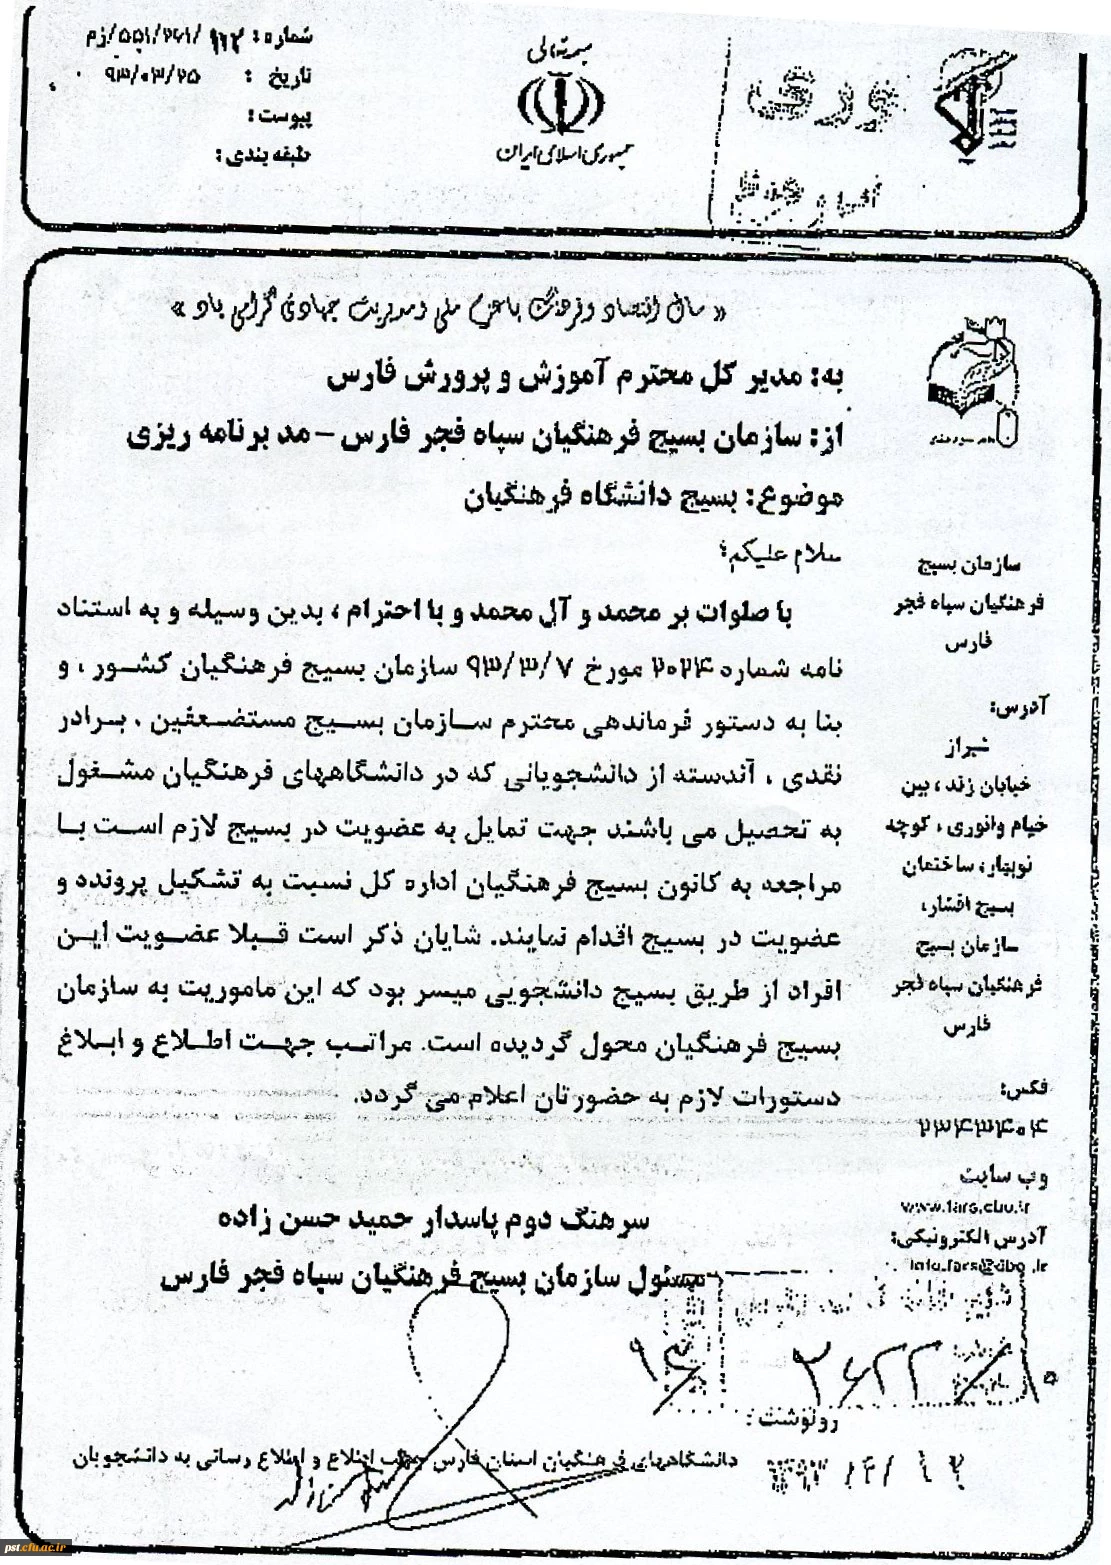 بسمه تعالی
جمهوری اسلامی ایران
شماره:
تاریخ : ۹۳/۰۳/۲۵
پیوست:
طبقه بندی:
« سال اقتصاد و فرهنگ با عزم ملی و مدیریت جهادی گرامی باد »
به: مدیر کل محترم آموزش و پرورش فارس
از: سازمان بسیج فرهنگیان سپاه فجر فارس – مد برنامه ریزی
موضوع: بسیج دانشگاه فرهنگیان
سلام علیکم؛
با صلوات بر محمد و آل محمد و با احترام ، بدین وسیله و به استناد
نامه شماره ۲۰۲۴ مورخ ۹۳/۳/۷ سازمان بسیج فرهنگیان کشور ، و
بنا به دستور فرماندهی محترم سازمان بسیج مستضعفین ، برادر
نقدی ، آندسته از دانشجویانی که در دانشگاههای فرهنگیان مشغول
به تحصیل می باشند جهت تمایل به عضویت در بسیج لازم است با
مراجعه به کانون بسیج فرهنگیان اداره کل نسبت به تشکیل پرونده و
عضویت در بسیج اقدام نمایند. شایان ذکر است قبلا عضویت این
افراد از طریق بسیج دانشجویی میسر بود که این ماموریت به سازمان
بسیج فرهنگیان محول گردیده است. مراتب جهت اطلاع و ابلاغ
دستورات لازم به حضورتان اعلام می گردد.
سرهنگ دوم پاسدار حمید حسن زاده
مسئول سازمان بسیج فرهنگیان سپاه فجر فارس
رونوشت :
دانشگاههای فرهنگیان استان فارس جهت اطلاع و اطلاع رسانی به دانشجویان
سازمان بسیج
فرهنگیان سپاه فجر
فارس
آدرس:
شیراز
خیابان زند ، بین
خیام وانوری ، کوچه
نوبهار، ساختمان
بسیج اقشار،
سازمان بسیج
فرهنگیان سپاه فجر
فارس
فکس:
۲۳۴۳۴۰۴
وب سایت
آدرس الکترونیکی:
pst.cfu.ac.ir